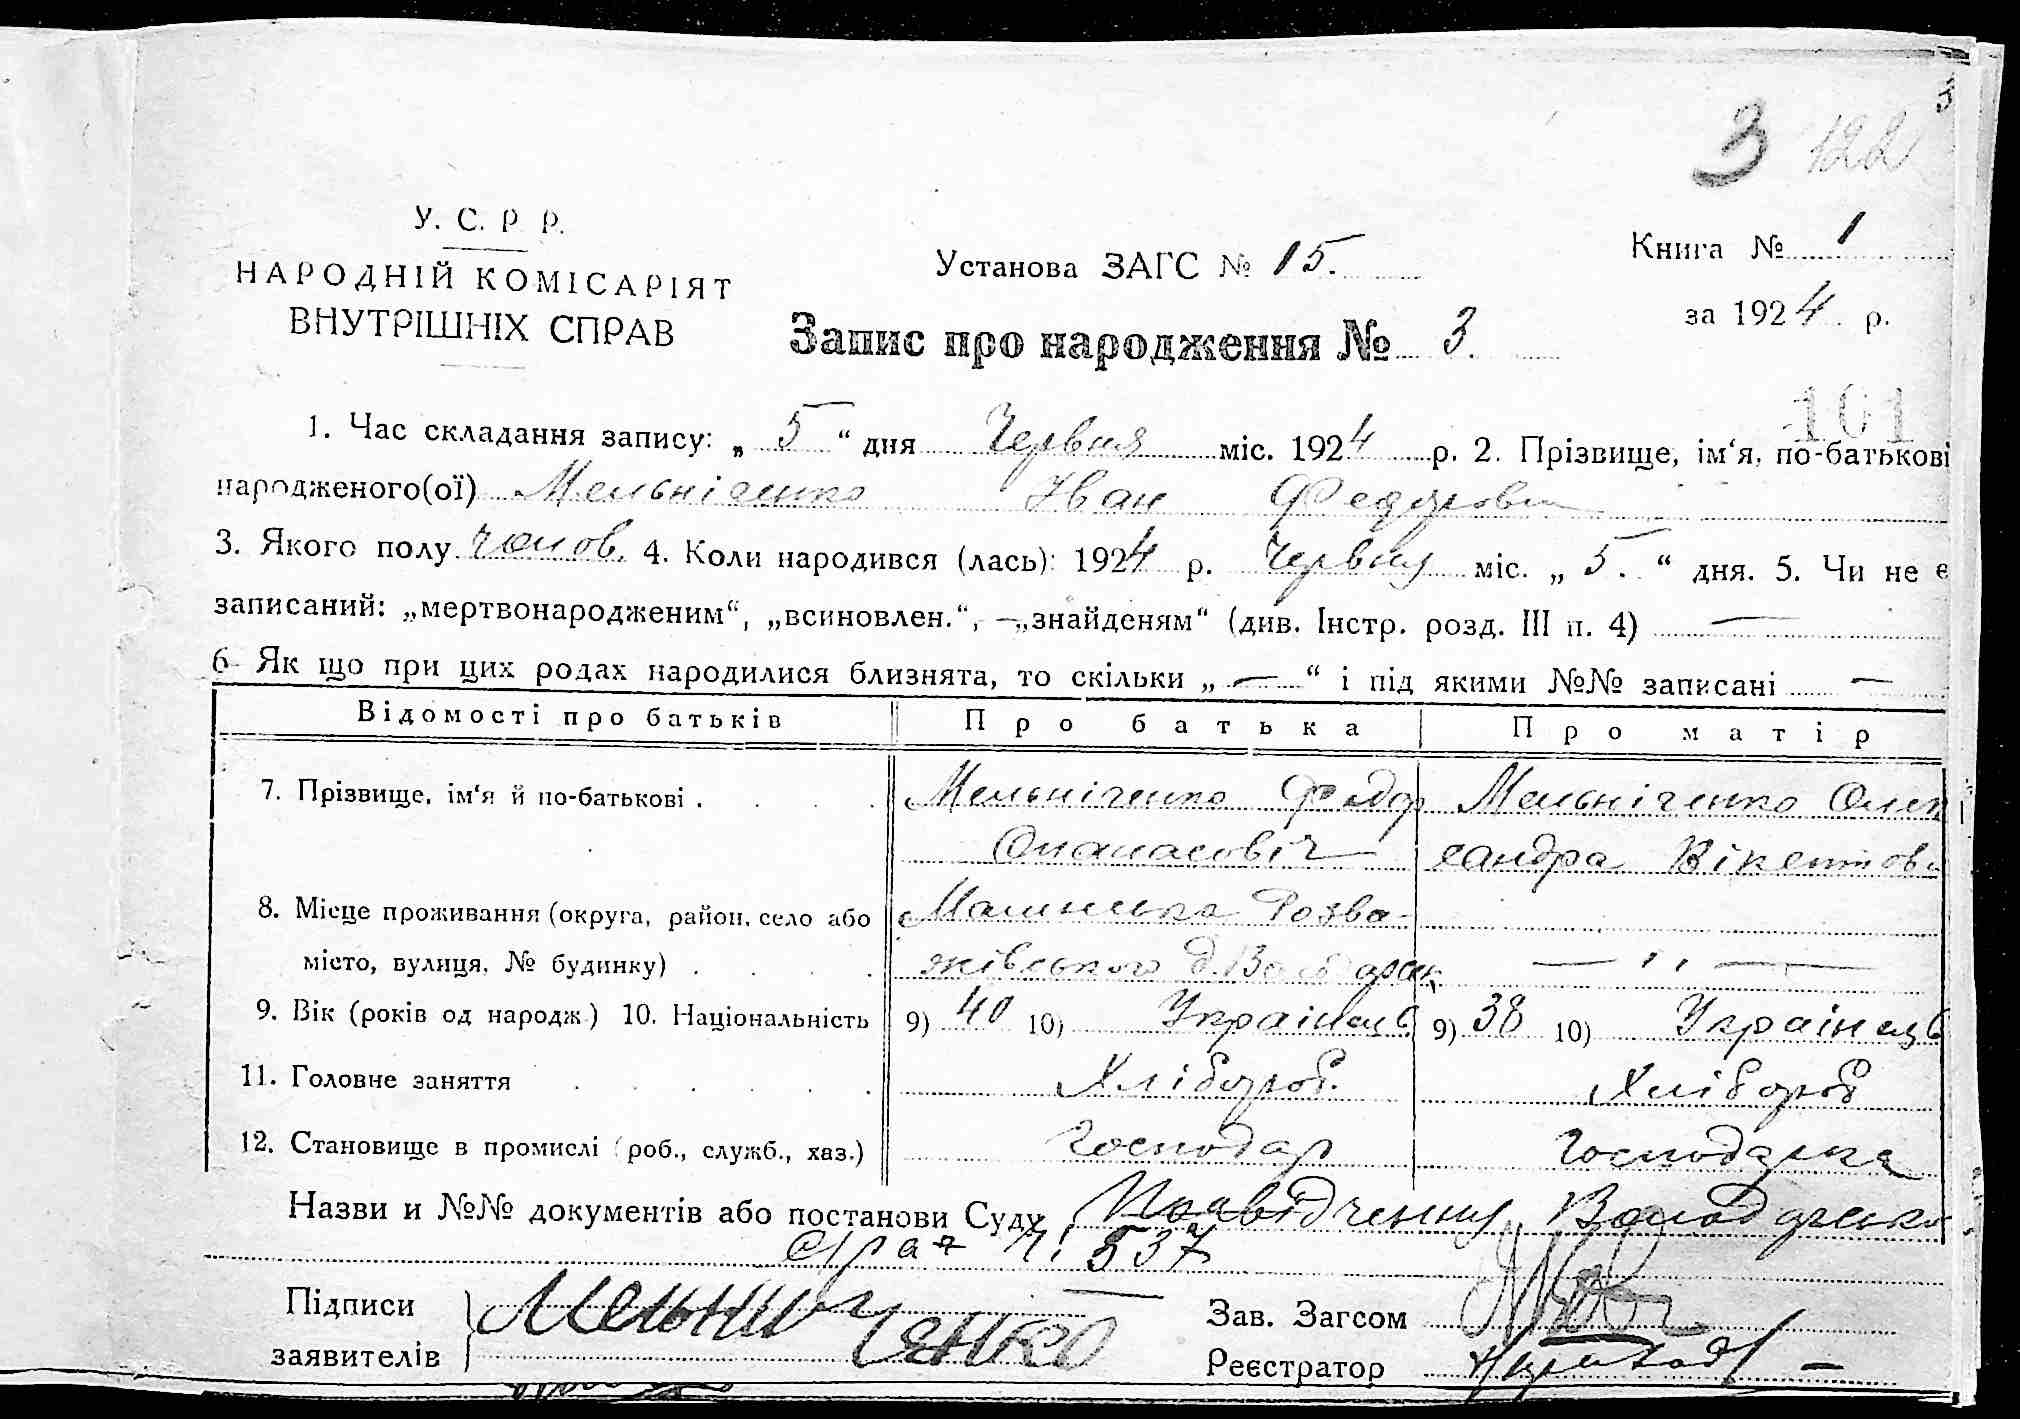 3
3 122
У. С. Р. Р.
НАРОДНІЙ КОМІСАРІЯТ
ВНУТРІШНІХ СПРАВ
Установа ЗАГС № 15.
Книга № 1
за 1924 р.
Запис про народження № 3.
101
1. Час складання запису: „ 5 “ дня Червня міс. 1924 р. 2. Прізвище, ім‘я, по-батькові
народженого(ої) Мельніченко Іван Федорович
3. Якого полу чолов. 4. Коли народився (лась): 1924 р. Червня міс. „ 5. “ дня. 5. Чи не є
записаний: „мертвонародженим“, „всиновлен.“, — „знайденям“ (див. Інстр. розд. III п. 4) —
6 Як що при цих родах народилися близнята, то скільки „ — “ і під якими №№ записані —
Відомості про батьків Про батька Про матір
7. Прізвище, ім‘я й по-батькові . Мельніченко Федор Мельніченко Олек
Опанасовіч сандра Вікентов
8. Місце проживання (округа, район, село або Розва-
місто, вулиця, № будинку) . жівського — ,, —
9. Вік (років од народж.) 10. Національність 9) 40 10) Українець 9) 38 10) Українець
11. Головне заняття Хлібороб. Хлібороб
12. Становище в промислі (роб., служб., хаз.) Господар Господарка
Назви и №№ документів або постанови Суду Посвідчення Володарсько
537
Підписи Мельни
заявителів ченко
Зав. Загсом
Реєстратор